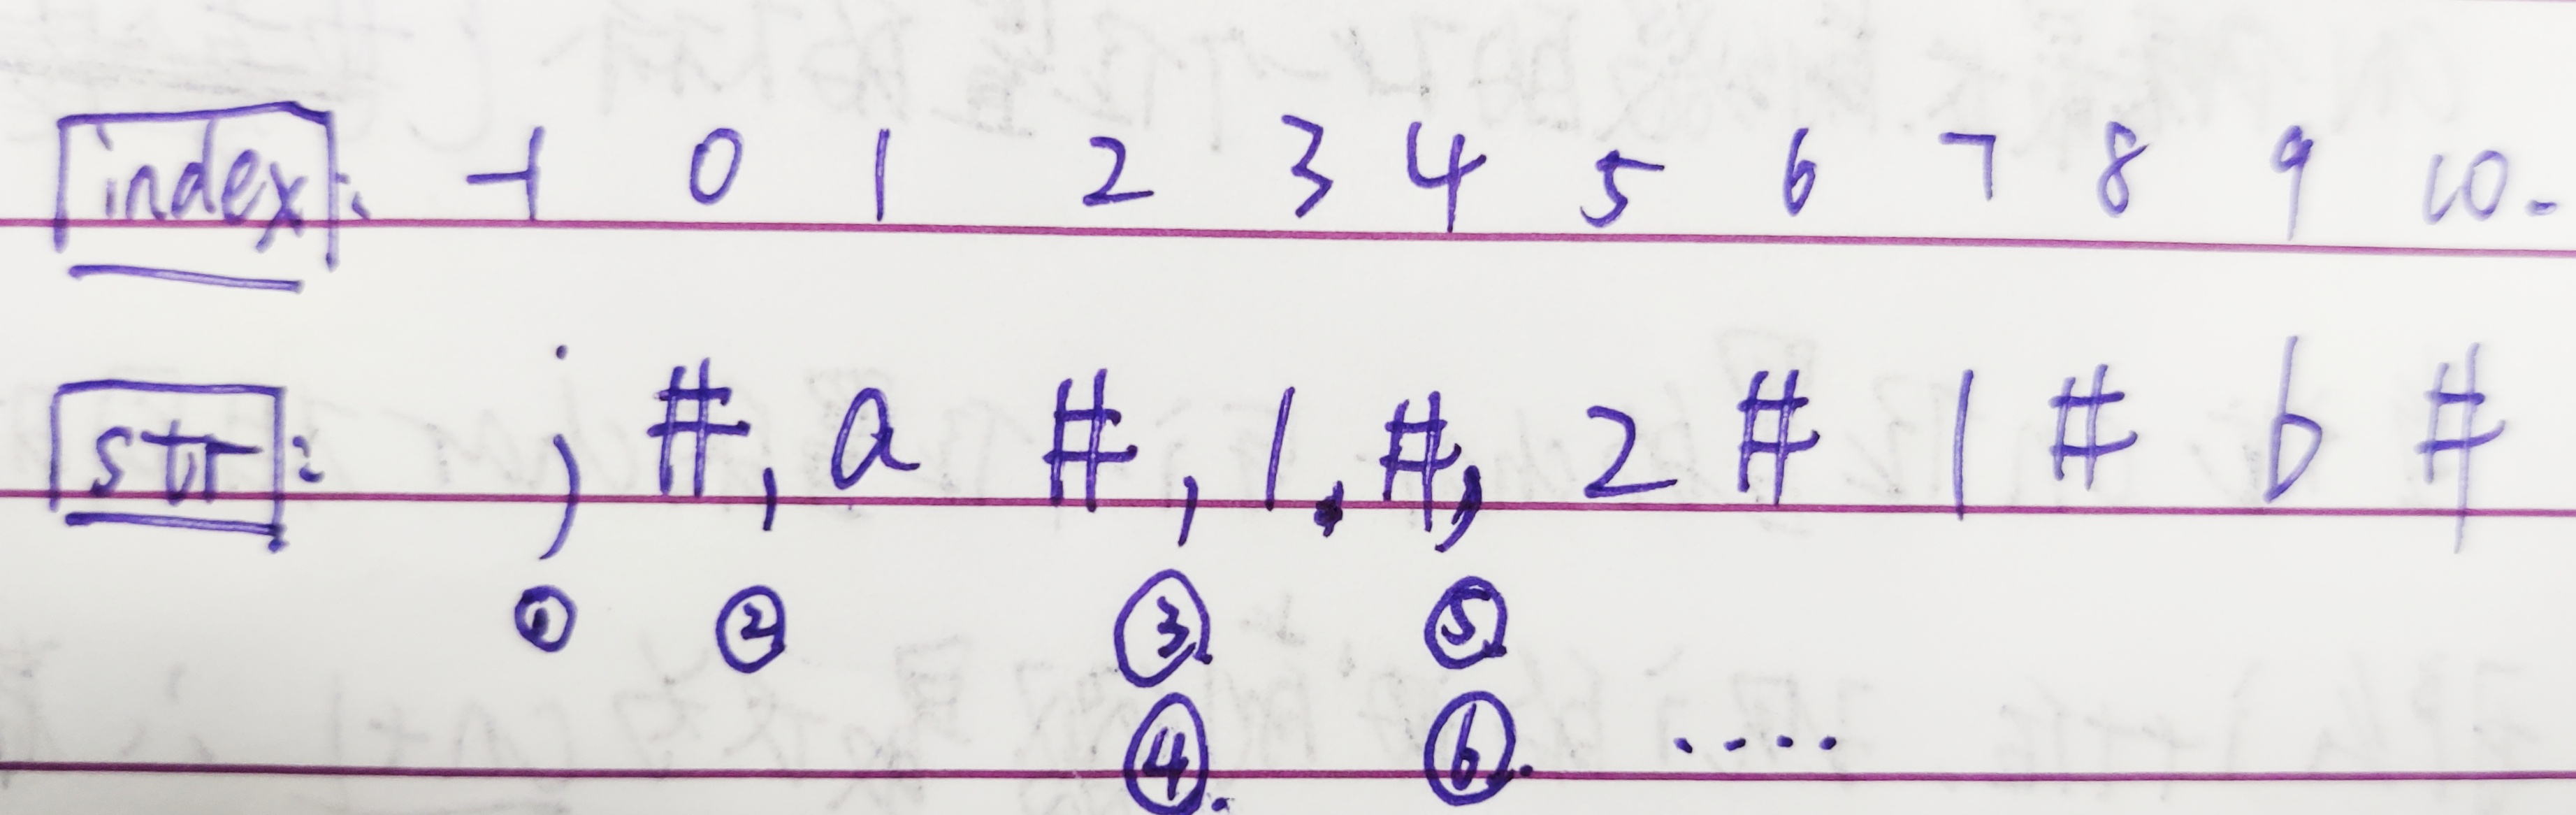 index: -1 0 1 2 3 4 5 6 7 8 9 10.
str: ; #, a #, 1. #, 2 # 1 # b #
① ② ③ ⑤
④. ⑥. ....